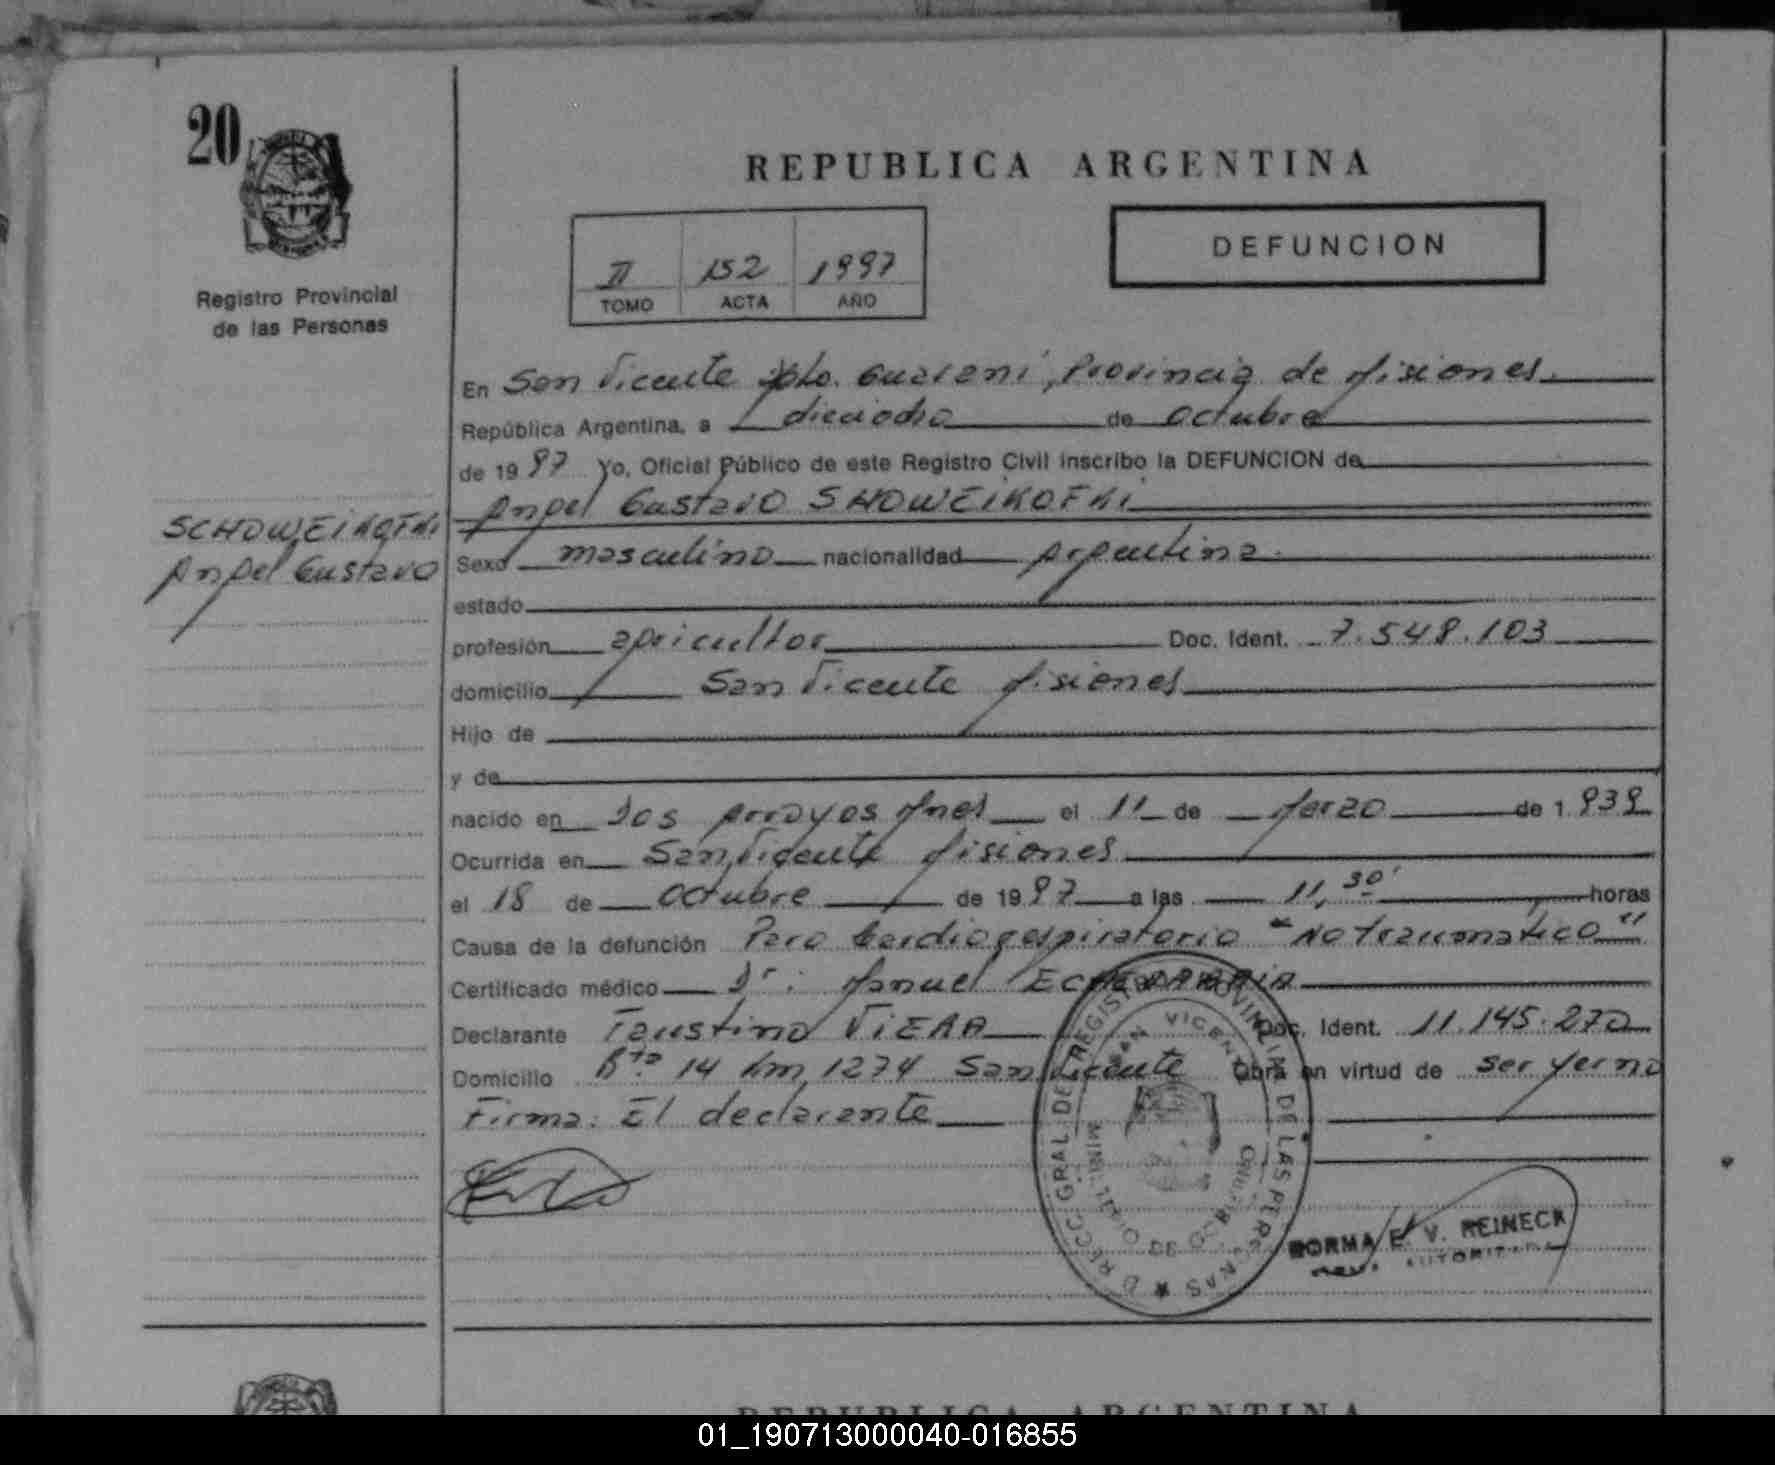 20
Registro Provincial
de las Personas
REPUBLICA ARGENTINA
DEFUNCION
II 152 1997
TOMO ACTA AÑO
En San Vicente Dpto. Guaraní, Provincia de Misiones
República Argentina, a dieciocho de octubre
de 1997 Yo, Oficial Público de este Registro Civil inscribo la DEFUNCION de
Angel Gustavo SHOWEIKOFKI
SCHOWEIKOFKI
Angel Gustavo
Sexo masculino nacionalidad Argentina
estado
profesión agricultor Doc. Ident. 7.548.103
domicilio San Vicente Misiones
Hijo de
y de
nacido en Dos Arroyos Mnes el 11 de Marzo de 1.939
Ocurrida en San Vicente Misiones
el 18 de octubre de 1997 a las 11,30' horas
Causa de la defunción Paro Cardiorespiratorio "No traumatico"
Certificado médico Dr: Manuel ECHEVARRIA
Declarante Faustino VIERA Doc. Ident. 11.145.270
Domicilio Bto 14 km 1274 San Vicente Obra en virtud de ser yerno
Firma: El declarante
DIRECC. GRAL. DEL REGISTRO PROVINCIAL DE LAS PERSONAS
SAN VICENTE
DE GOBIERNO
NORMA E. V. REINECK
REPUBLICA ARGENTINA
01_190713000040-016855